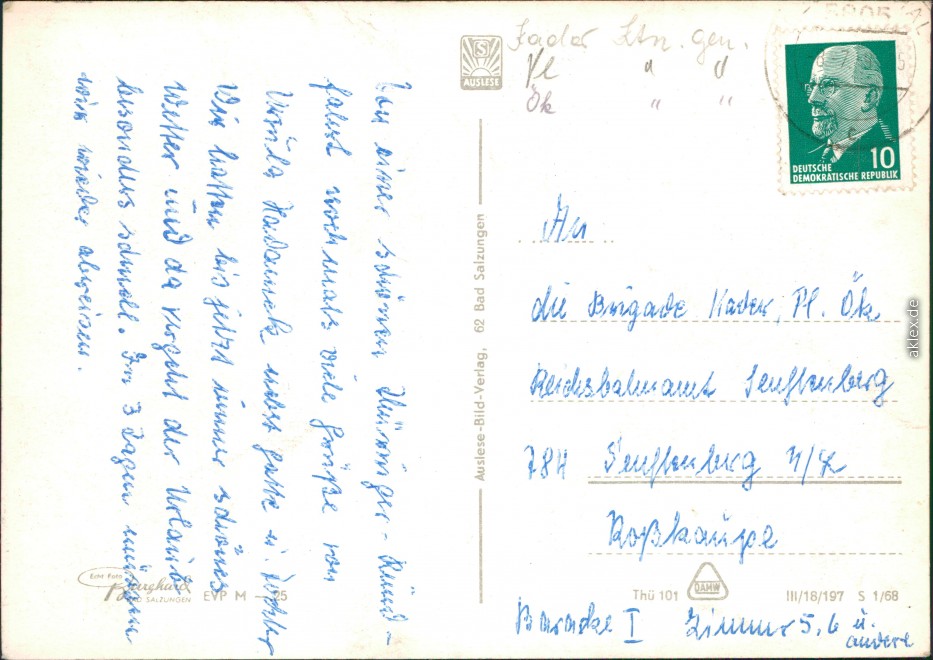 Von einer schönen Thüringer-Rund-
fahrt nochmals viele Grüße von
Ursula nebst Gatte u. Tochter
Wir hatten bis jetzt immer schönes
Wetter und da vergeht der Urlaub
besonders schnell. In 3 Tagen müssen
wir wieder abreisen.
Echt Foto
Burghard
BAD SALZUNGEN EVP M
Auslese-Bild-Verlag, 62 Bad Salzungen
S
AUSLESE
Kader Ltn. gen.
Pl " "
Ök " "
10
DEUTSCHE
DEMOKRATISCHE REPUBLIK
An
die Brigade Kader, Pl. Ök.
Reichsbahnamt Senftenberg
784 Senftenberg N/L
Roßkaupe
Thü 101 DAMW III/18/197 S 1/68
Baracke I Zimmer 5, 6 u.
andere
aklex.de